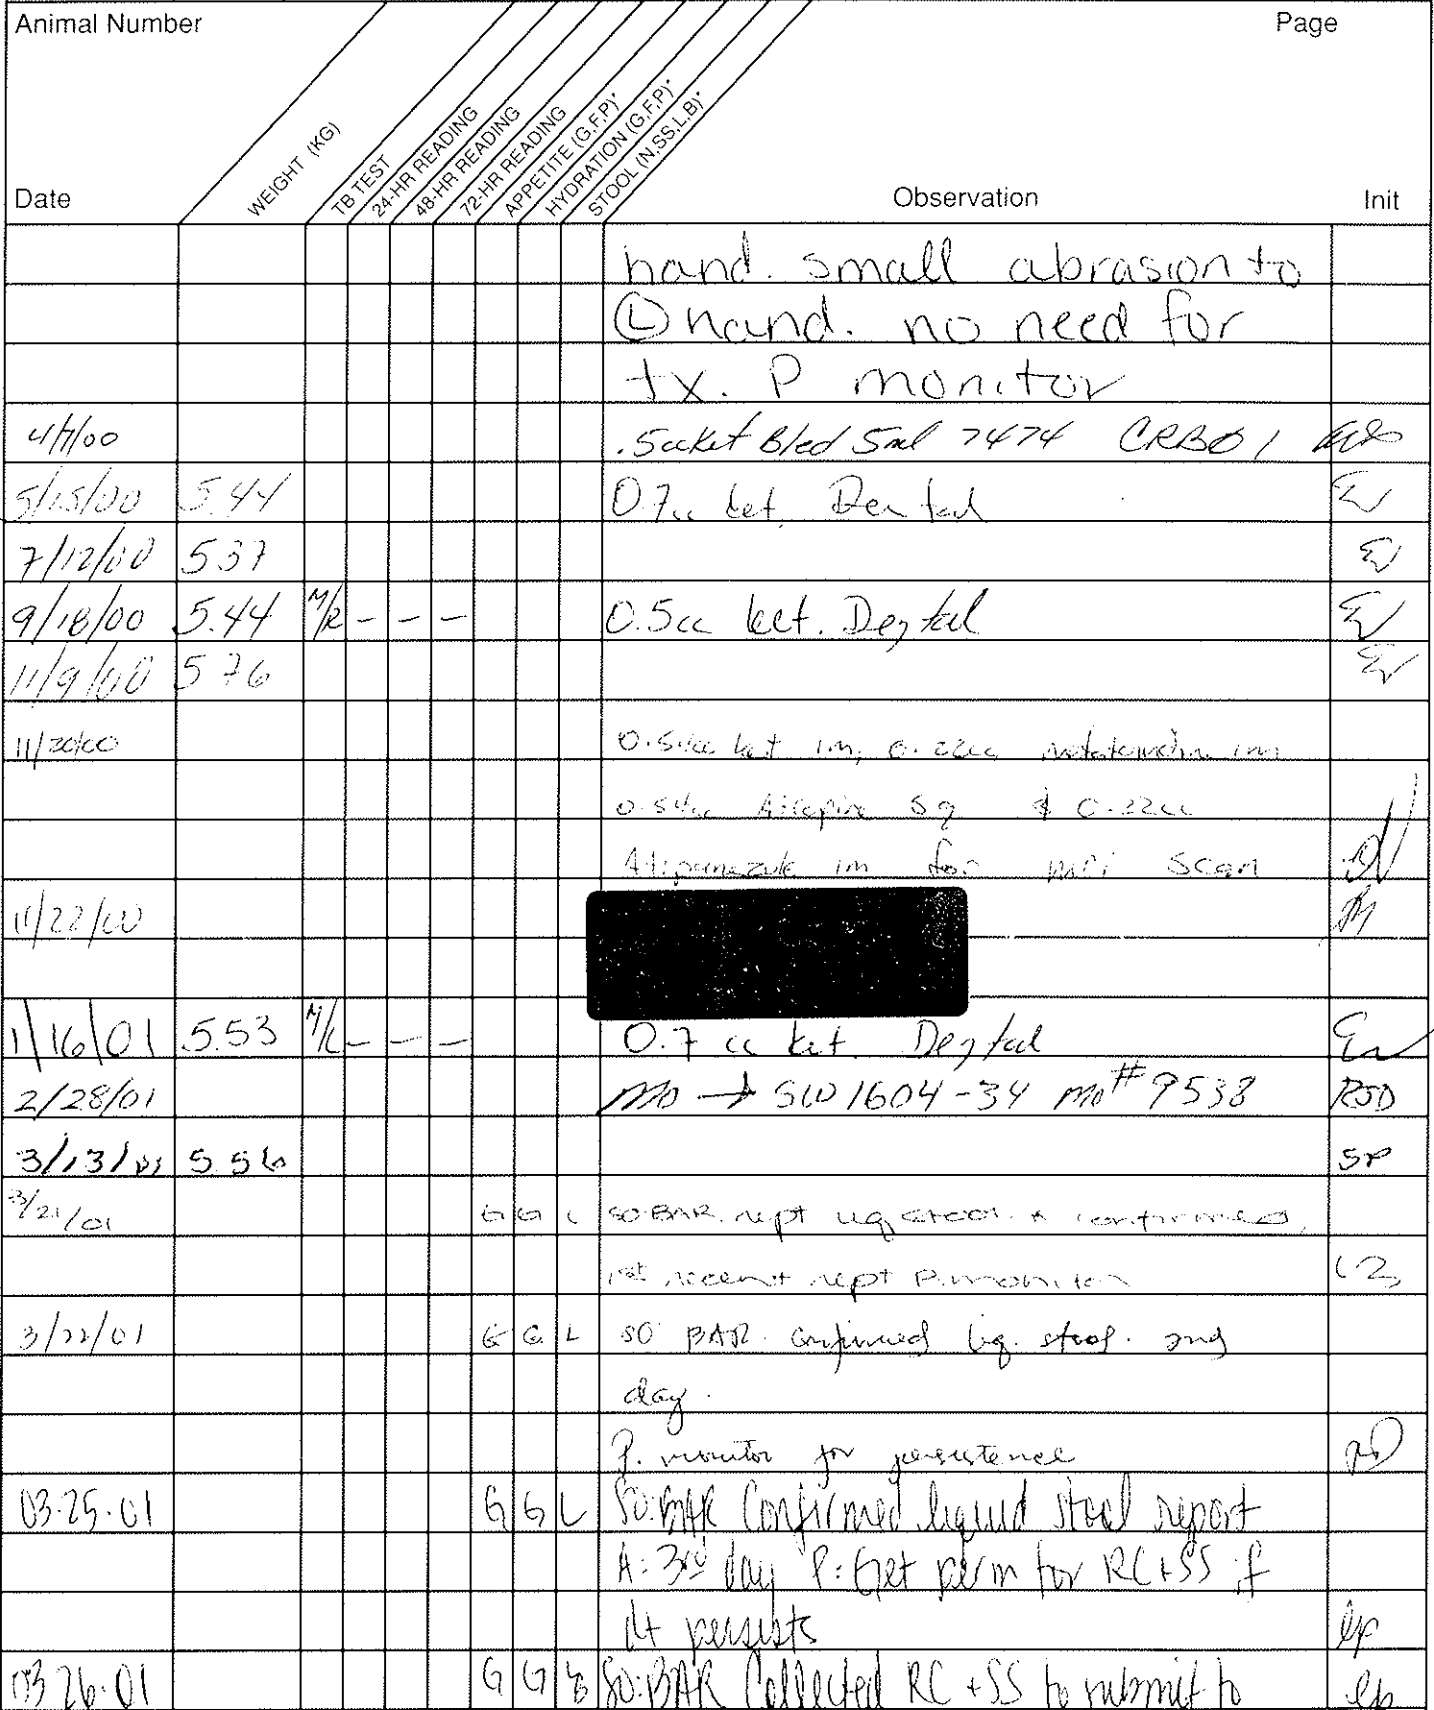 Animal Number
Page
Date
WEIGHT (KG)
TB TEST
24-HR READING
48-HR READING
72-HR READING
APPETITE (G,F,P)*
HYDRATION (G,F,P)*
STOOL (N,SS,L,B)*
Observation
Init
hand. small abrasion to
Ⓛ hand. no need for
tx. P monitor
4/7/00 .5cc ket Bled 5ml 7474 CRB01
5/15/00 5.44 0.7cc ket. Dental
7/12/00 5.37
9/18/00 5.44 M/R - - - 0.5cc ket. Dental
11/9/00 5.76
11/20/00 0.54cc ket im, 0.22cc im
0.54cc Atropine SQ & 0.22cc
im for MRI Scan
11/22/00
1/16/01 5.53 M/L - - - 0.7 cc ket. Dental
2/28/01 mo → SW 1604-34 mo# 9538 RSD
3/13/01 5.56 SP
3/21/01 G G L SO:BAR. rept liq stool. A confirmed,
1st recent rept P. monitor
3/22/01 G G L SO BAR. confirmed liq. stool. 2nd
day.
P. monitor for persistence
03.25.01 G G L SO:BAR Confirmed liquid stool report
A: 3rd day P: Get perm for RC+SS if
it persists
03.26.01 G G SO:BAR Collected RC + SS to submit to